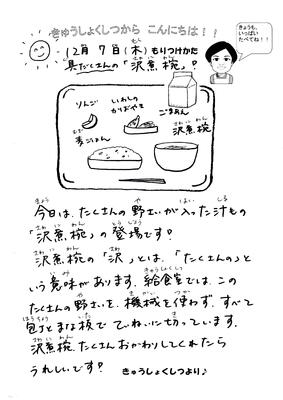 きゅうしょくしつから こんにちは！！
きょうも、
いっぱい
たべてね！！
12月 7日（木）もりつけかた
具だくさんの「沢煮椀」！
りんご
いわしの
かりおやき
ごまあん
麦ごはん
沢煮椀
今日は、たくさんの野さいが入った汁もの
「沢煮椀」の登場です！
沢煮椀の「沢」とは、「たくさんの」と
いう意味があります。給食室では、この
たくさんの野さいを、機械を使わず、すべて
包丁とまな板でていねいに切っています。
沢煮椀、たくさんおかわりしてくれたら
うれしいです！
きゅうしょくしつより♪